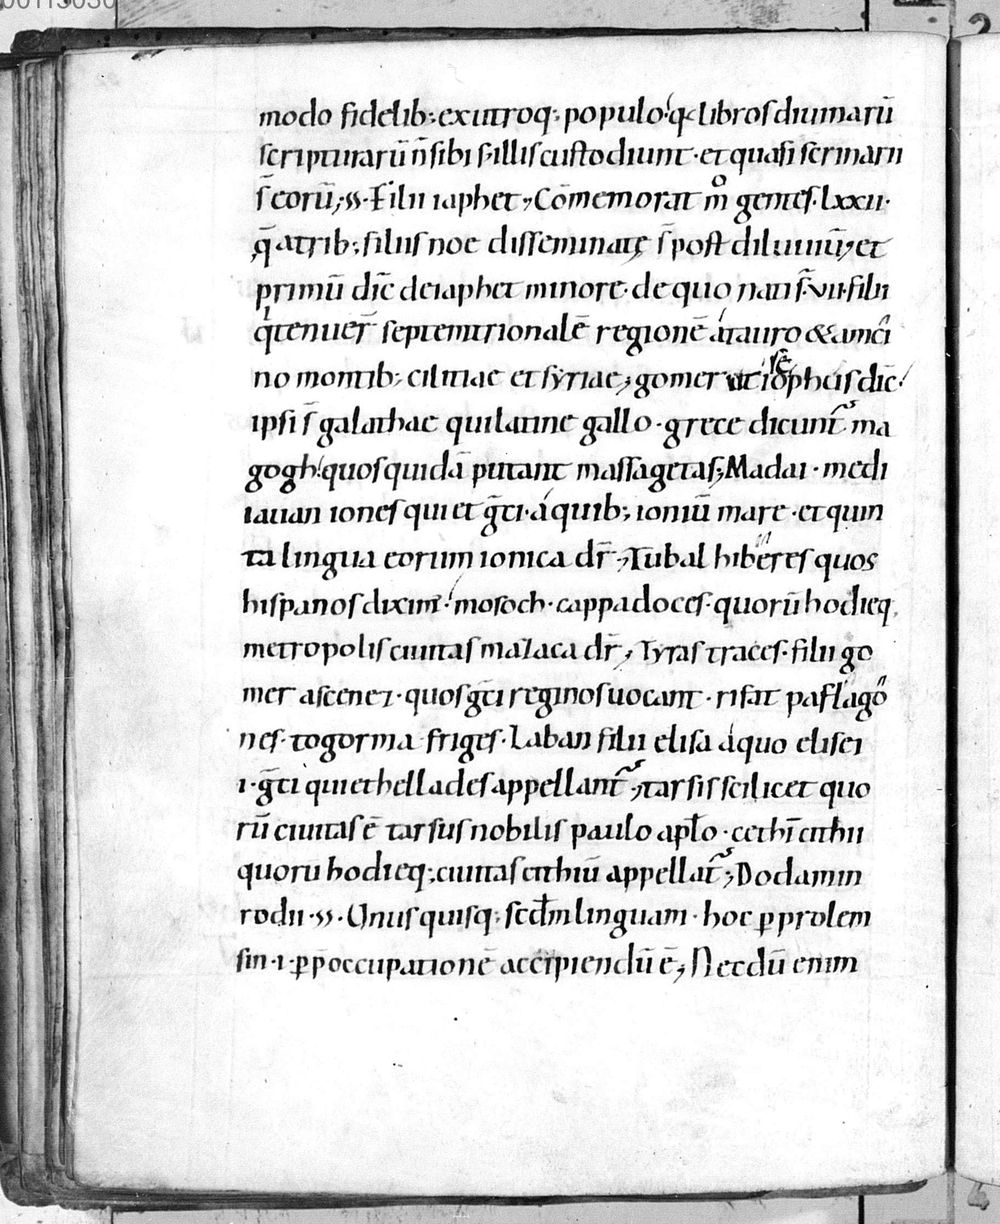 modo fidelib; exutroq; populo. q libros diuinarū
scripturarū n̄ sibi s; illis custodiunt · et quasi scrinarii
s̄ eorū; ss · Filii iaphet; Cōmemorat m̊ gentes · lxxii ·
q̄ a trib; filiis noe disseminatę s̄ post diluuiū; et
primū dic̄ de iaphet minore · de quo nati s̄ · vii · filii
q tenuer̄ septemtrionalē regionē á tauro & amā
no montib; ciliciae et syriae; gomer iosepheis dic̄
ipsi s̄ galathae qui latine gallo · grece dicunt̄ ma
gogh quos quidā putant massagetas; Madai · medi
iauan iones qui et gc̄i · á quib; ioniū mare · et quin
ta lingua eorum ionica dr̄; Tubal hiberes quos
hispanos diximꝰ mosoch · cappadoces · quorū hodieq;
metropolis ciuitas mazaca dr̄; Tyras traces · filii go
mer ascenez · quos gc̄i reginos uocant · rifat paflago
nes · togorma friges · Laban filii elisa áquo elisei
· i · gc̄i qui et hellades appellant̄; tarsis scilicet quo
rū ciuitas ē tarsus nobilis paulo apł̄o · cethī cithii
quorū hodieq; ciuitas cithiū appellat̄; Dodamin
rodii · ss · Unusquisq; scd̄m linguam · hoc p̱ prolem
sin · i · p̱ p̄occupationē accipiendū ē; Necdū enim